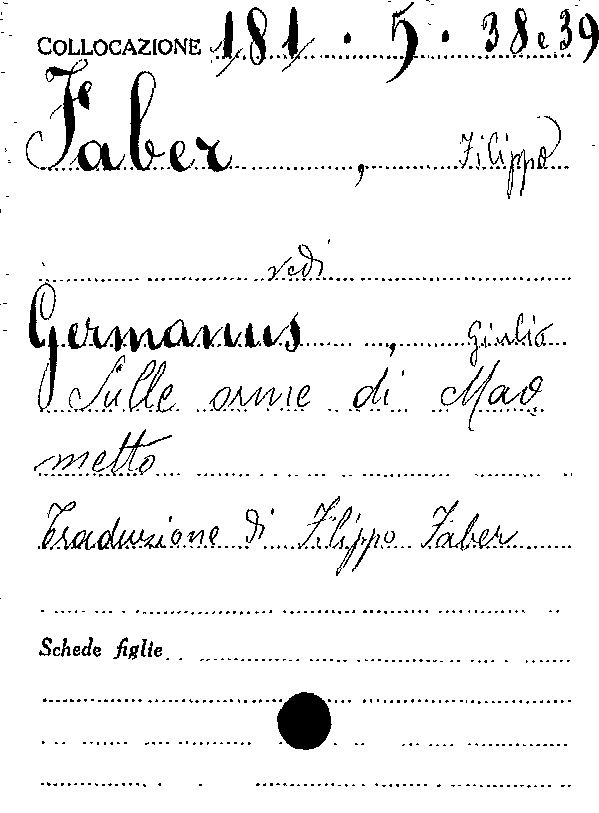 COLLOCAZIONE 181 . 5 . 38 e 39
Faber , Filippo
vedi
Germanus , Giulio
Sulle orme di Mao
metto
Traduzione di Filippo Faber
Schede figlie